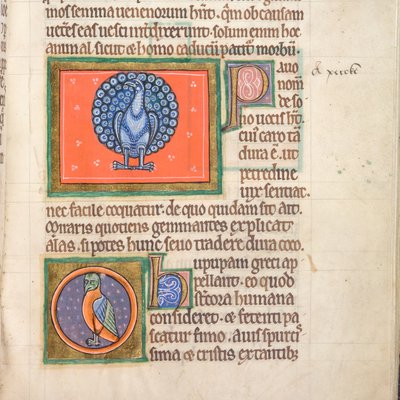 mos semina uenenorum hn̄t. Qm̄ ob causam
ueteres eas uesci interdixerunt. solum enim hoc
animal sicut & homo caducū patit᷑ morbū.
Pauo
nom̄
de so
no uocis ht̄.
cui᷒ caro tā
dura ē. ut
putredine
uix sentiat᷑
nec facile coquatur. de quo quidam sic ait.
Miraris quotiens gemmantes explicat
alas. si potes hunc seuo tradere dura coco.
hupupam greci ap
pellant. eo quod
stercora humana
consideret. & fetenti pa
scatur fimo. Auis spurcis
sima & cristis extantib᷒